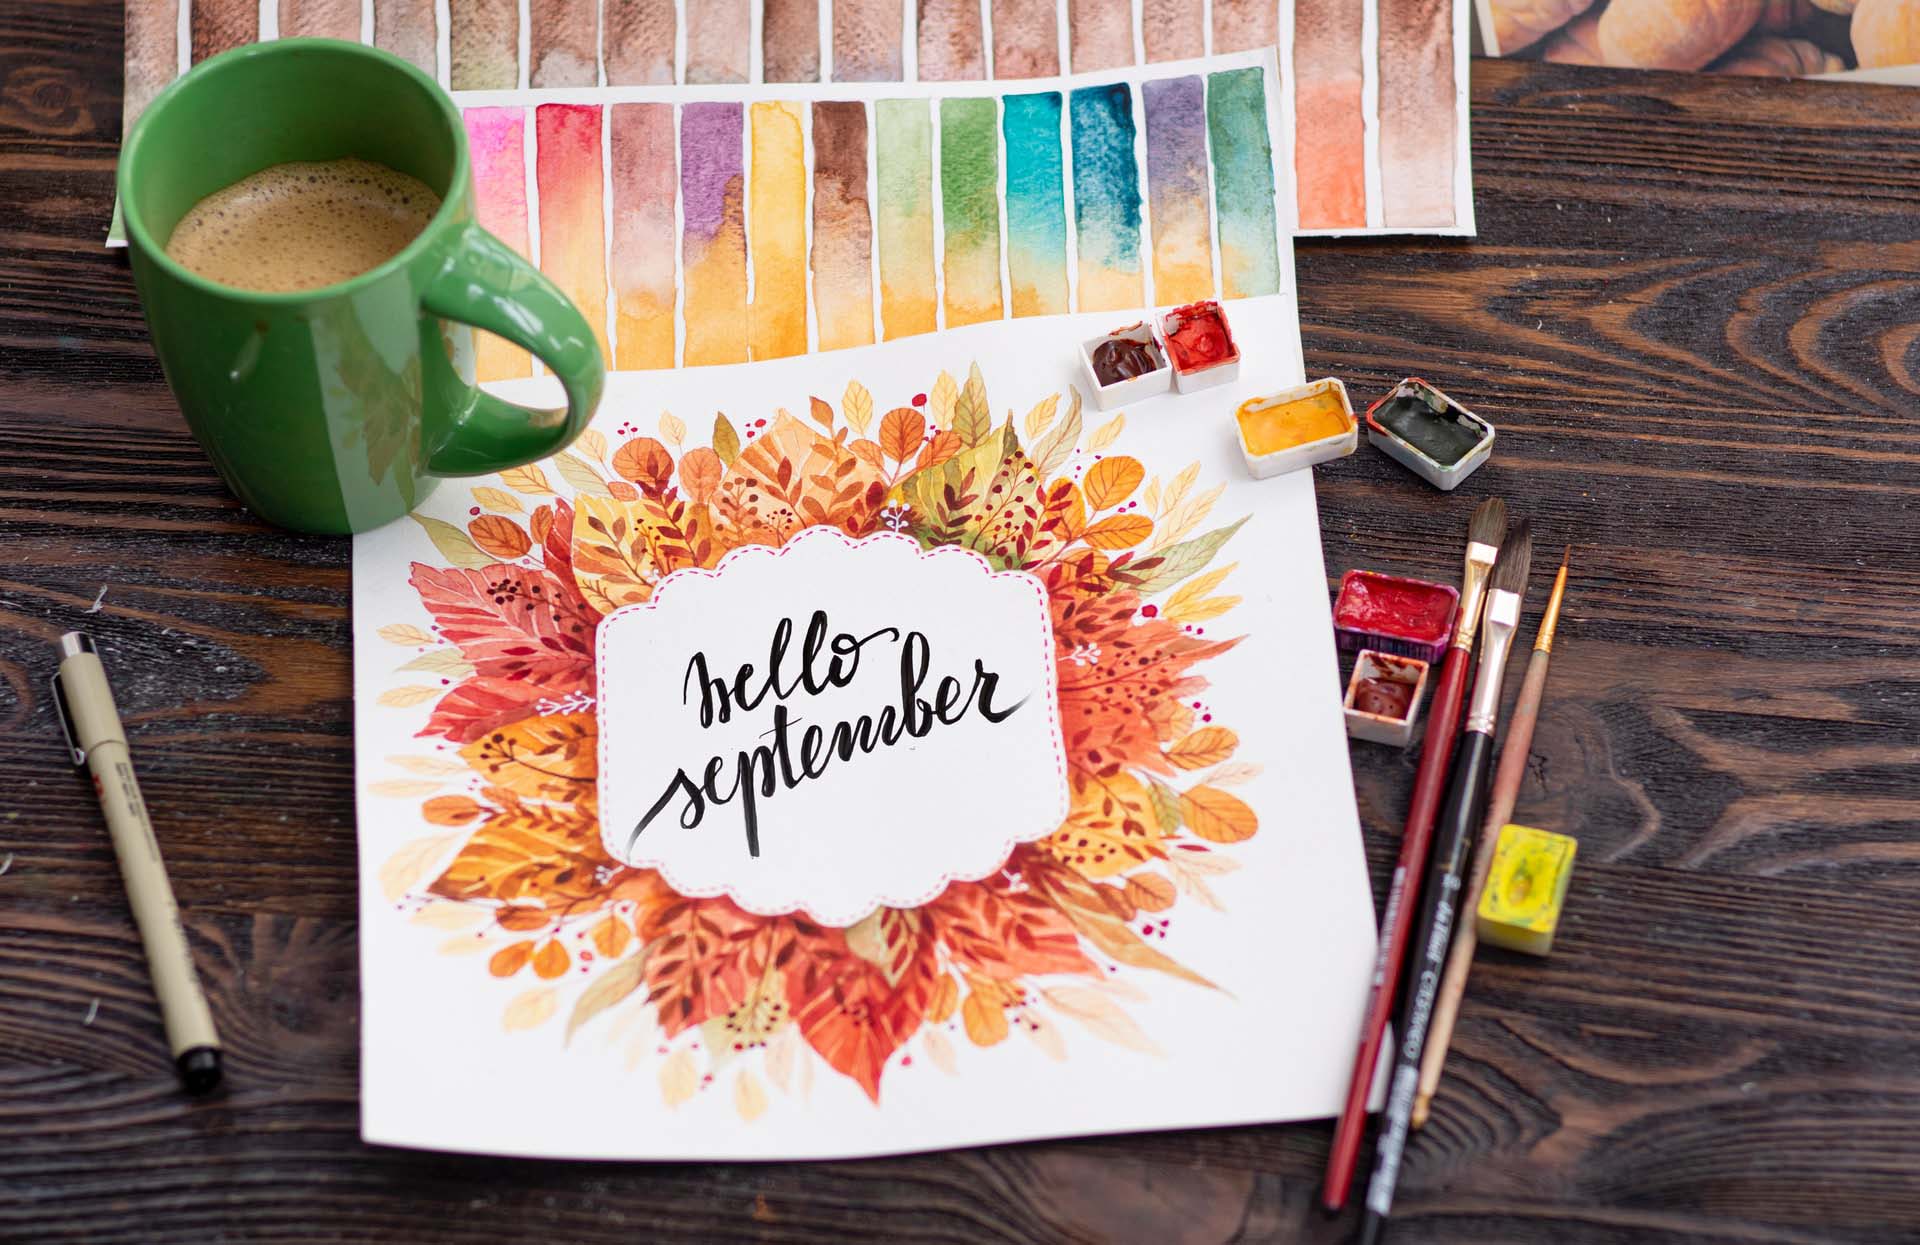 hello
september